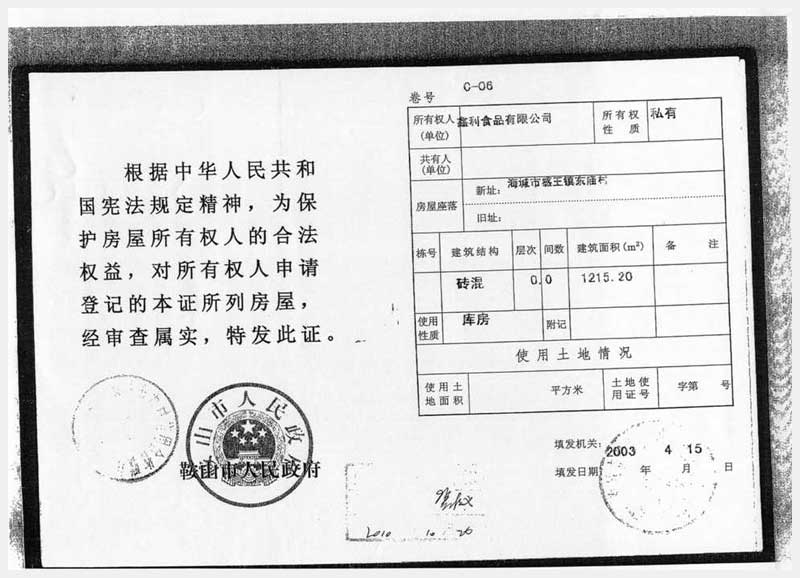 根据中华人民共和
国宪法规定精神，为保
护房屋所有权人的合法
权益，对所有权人申请
登记的本证所列房屋，
经审查属实，特发此证。
鞍山市人民政府
山市人民政府
2010 10 26
卷号 C-06
所有权人(单位) 鑫利食品有限公司 所有权性质 私有
共有人(单位)
房屋座落 新址: 海城市感王镇东庙村
旧址:
栋号 建筑结构 层次 间数 建筑面积(m²) 备 注
砖混 0.0 1215.20
使用性质 库房 附记
使用土地情况
使用土地面积 平方米 土地使用证号 字第 号
填发机关:
2003 4 15
填发日期 年 月 日